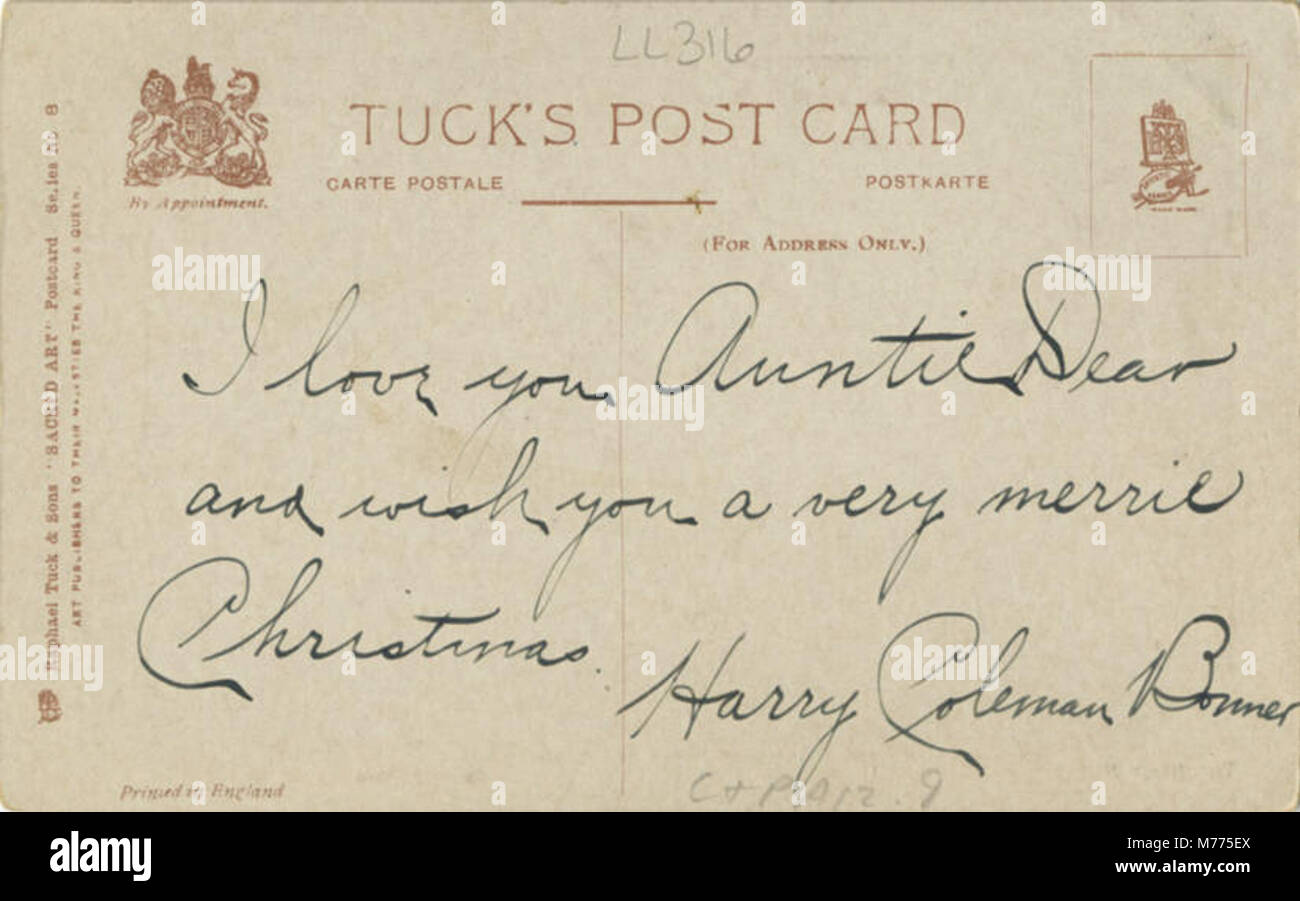 LL316
TUCK'S POST CARD
CARTE POSTALE
POSTKARTE
By Appointment.
(FOR ADDRESS ONLY.)
Raphael Tuck & Sons "SACRED ART" Postcard Series No 8
ART PUBLISHERS TO THEIR MAJESTIES THE KING & QUEEN.
I love you Auntie Dear
and wish you a very merrie
Christmas.
Harry Coleman Bonner
Printed in England
alamy
Image ID: M775EX
www.alamy.com